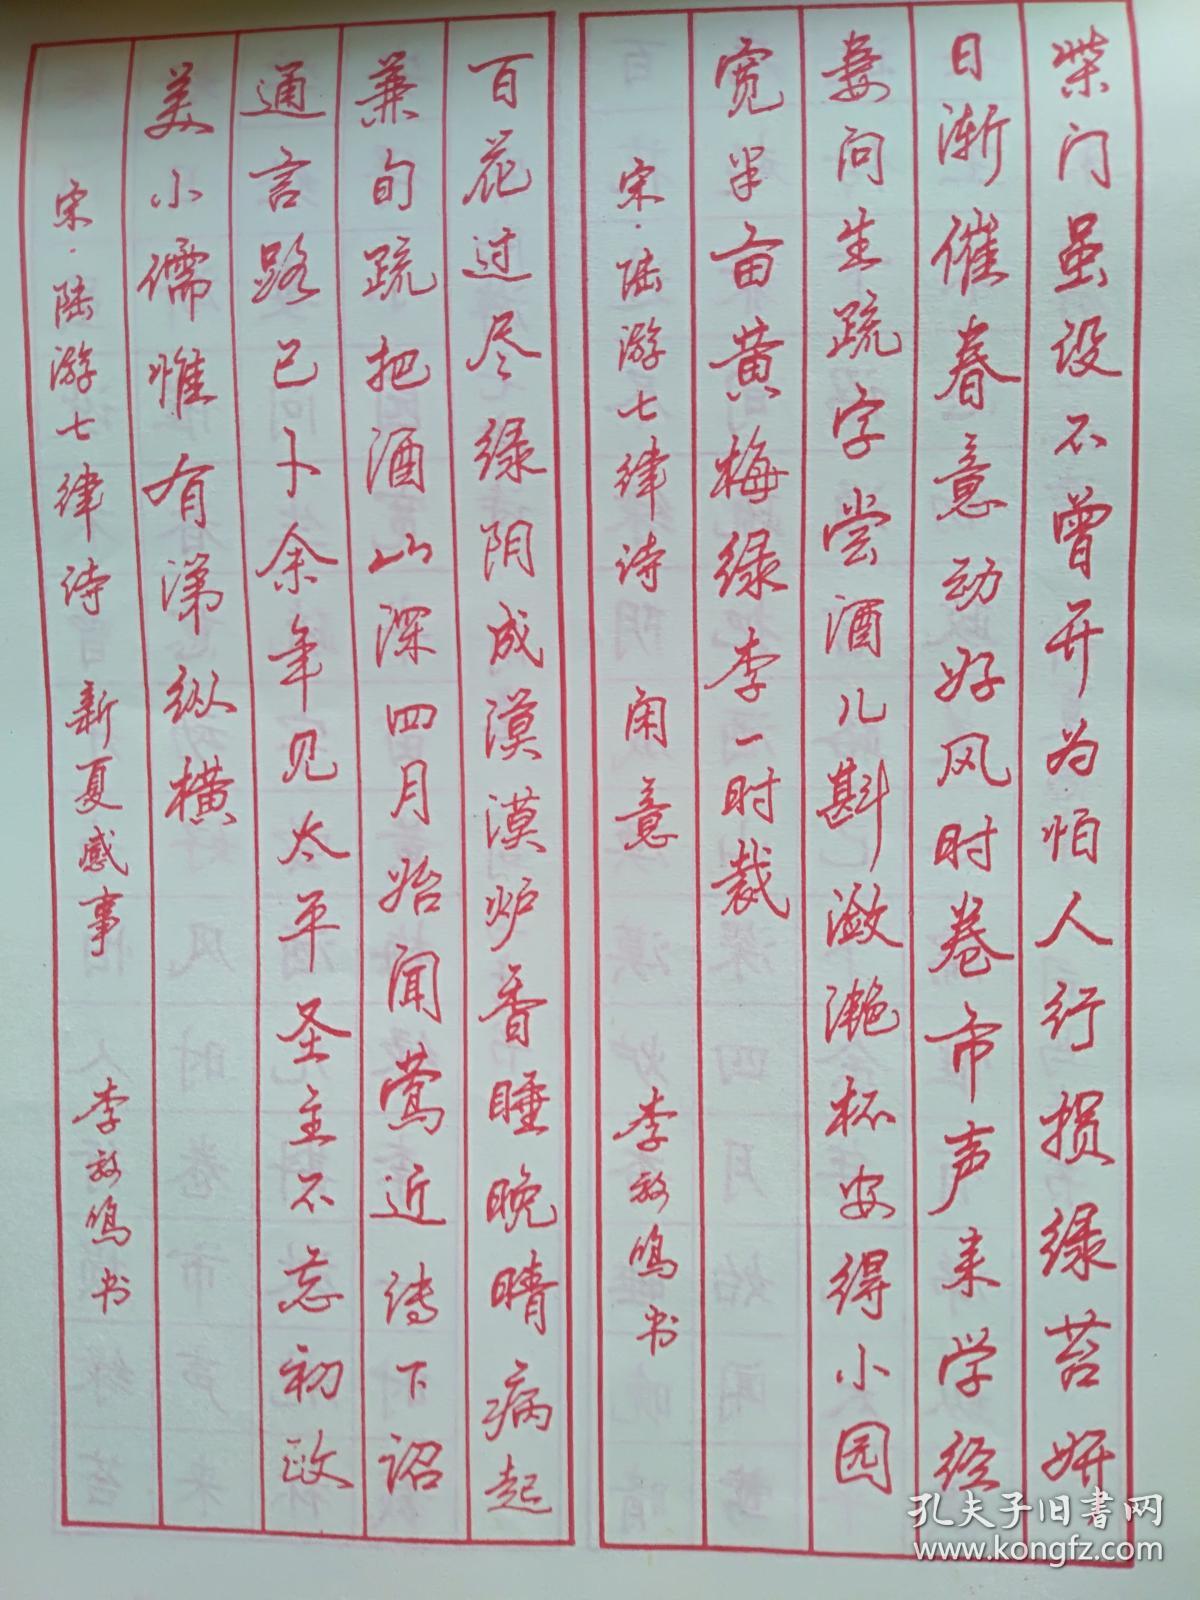 柴门虽设不曾开为怕人行损绿苔妍
日渐催春意动好风时卷市声来学经
妻问生疏字尝酒儿斟潋滟杯安得小园
宽半亩黄梅绿李一时裁
宋·陆游七律诗 闲意 李放鸣书
百花过尽绿阴成漠漠炉香睡晚晴病起
兼旬疏把酒山深四月始闻莺近传下诏
通言路已卜余年见太平圣主不忘初政
美小儒惟有涕纵横
宋·陆游七律诗 新夏感事 李放鸣书
孔夫子旧书网
www.kongfz.com